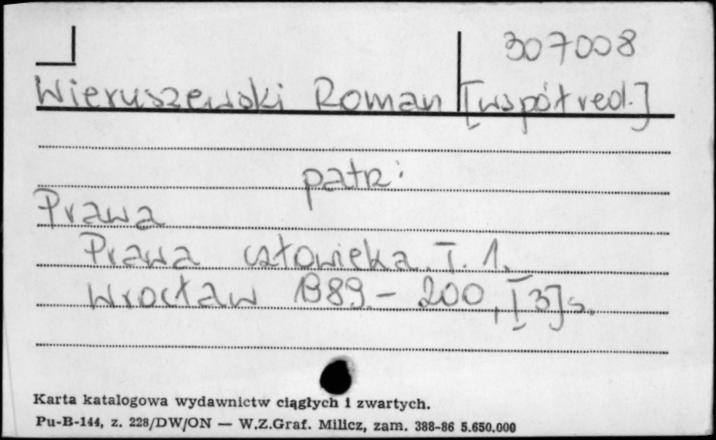 307008
Wieruszewski Roman [współred.]
patrz:
Prawa
Prawa człowieka. T. 1.
Wrocław 1989.- 200, [3] s.
Karta katalogowa wydawnictw ciągłych i zwartych.
Pu-B-144, z. 228/DW/ON — W.Z.Graf. Milicz, zam. 388-86 5.650.000